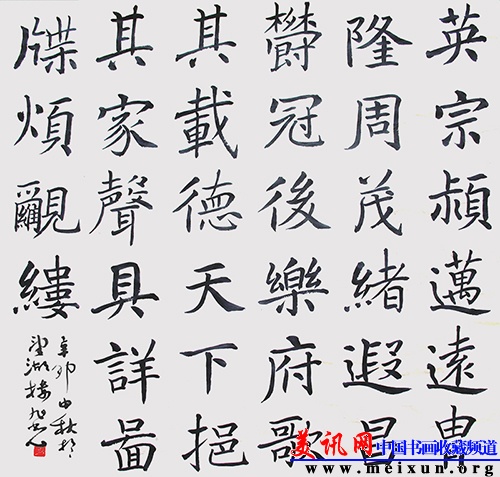 英宗邁遠冑
隆周茂緒遐昌
冠後樂府歌
其載德天下挹
其家聲具詳啚
牒煩覼縷
辛卯中秋於
湖樓
美讯网 中国书画收藏频道
www.meixun.org